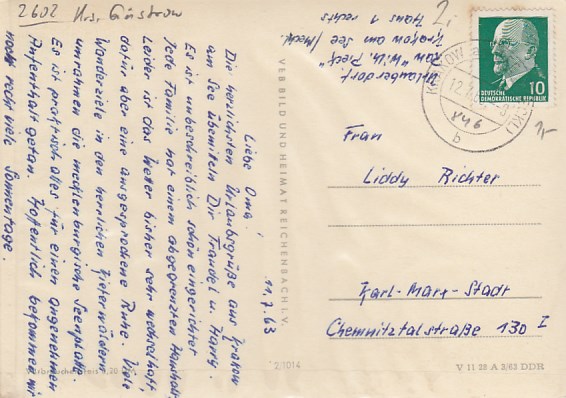 2602 Krs. Güstrow
11.7.63
Liebe Oma!
Die herzlichsten Urlaubsgrüße aus Krakow
am See übermitteln Dir Traudel u. Harry.
Es ist unbeschreiblich schön eingerichtet
Jede Familie hat einen abgegrenzten Haushalt.
Leider ist das Wetter bisher sehr wechselhaft,
dafür aber eine ausgesprochene Ruhe. Viele
Wanderziele in den herrlichen Kiefernwäldern
umrahmen die mecklenburgische Seenplatte.
Es ist praktisch alles für einen angenehmen
Aufenthalt getan. Hoffentlich bekommen wir
noch recht viele Sonnentage.
VEB BILD UND HEIMAT REICHENBACH I. V.
2/1014
Verbraucherpreis 0,20
Urlauberdorf
RAW "Wilh. Pieck"
Krakow am See /Meckl.
Haus 1 rechts
2,
DEUTSCHE
DEMOKRATISCHE REPUBLIK
10
KRAKOW
b
1,-
Frau
Liddy Richter
Karl-Marx-Stadt
Chemnitztalstraße 130 I
V 11 28 A 3/63 DDR